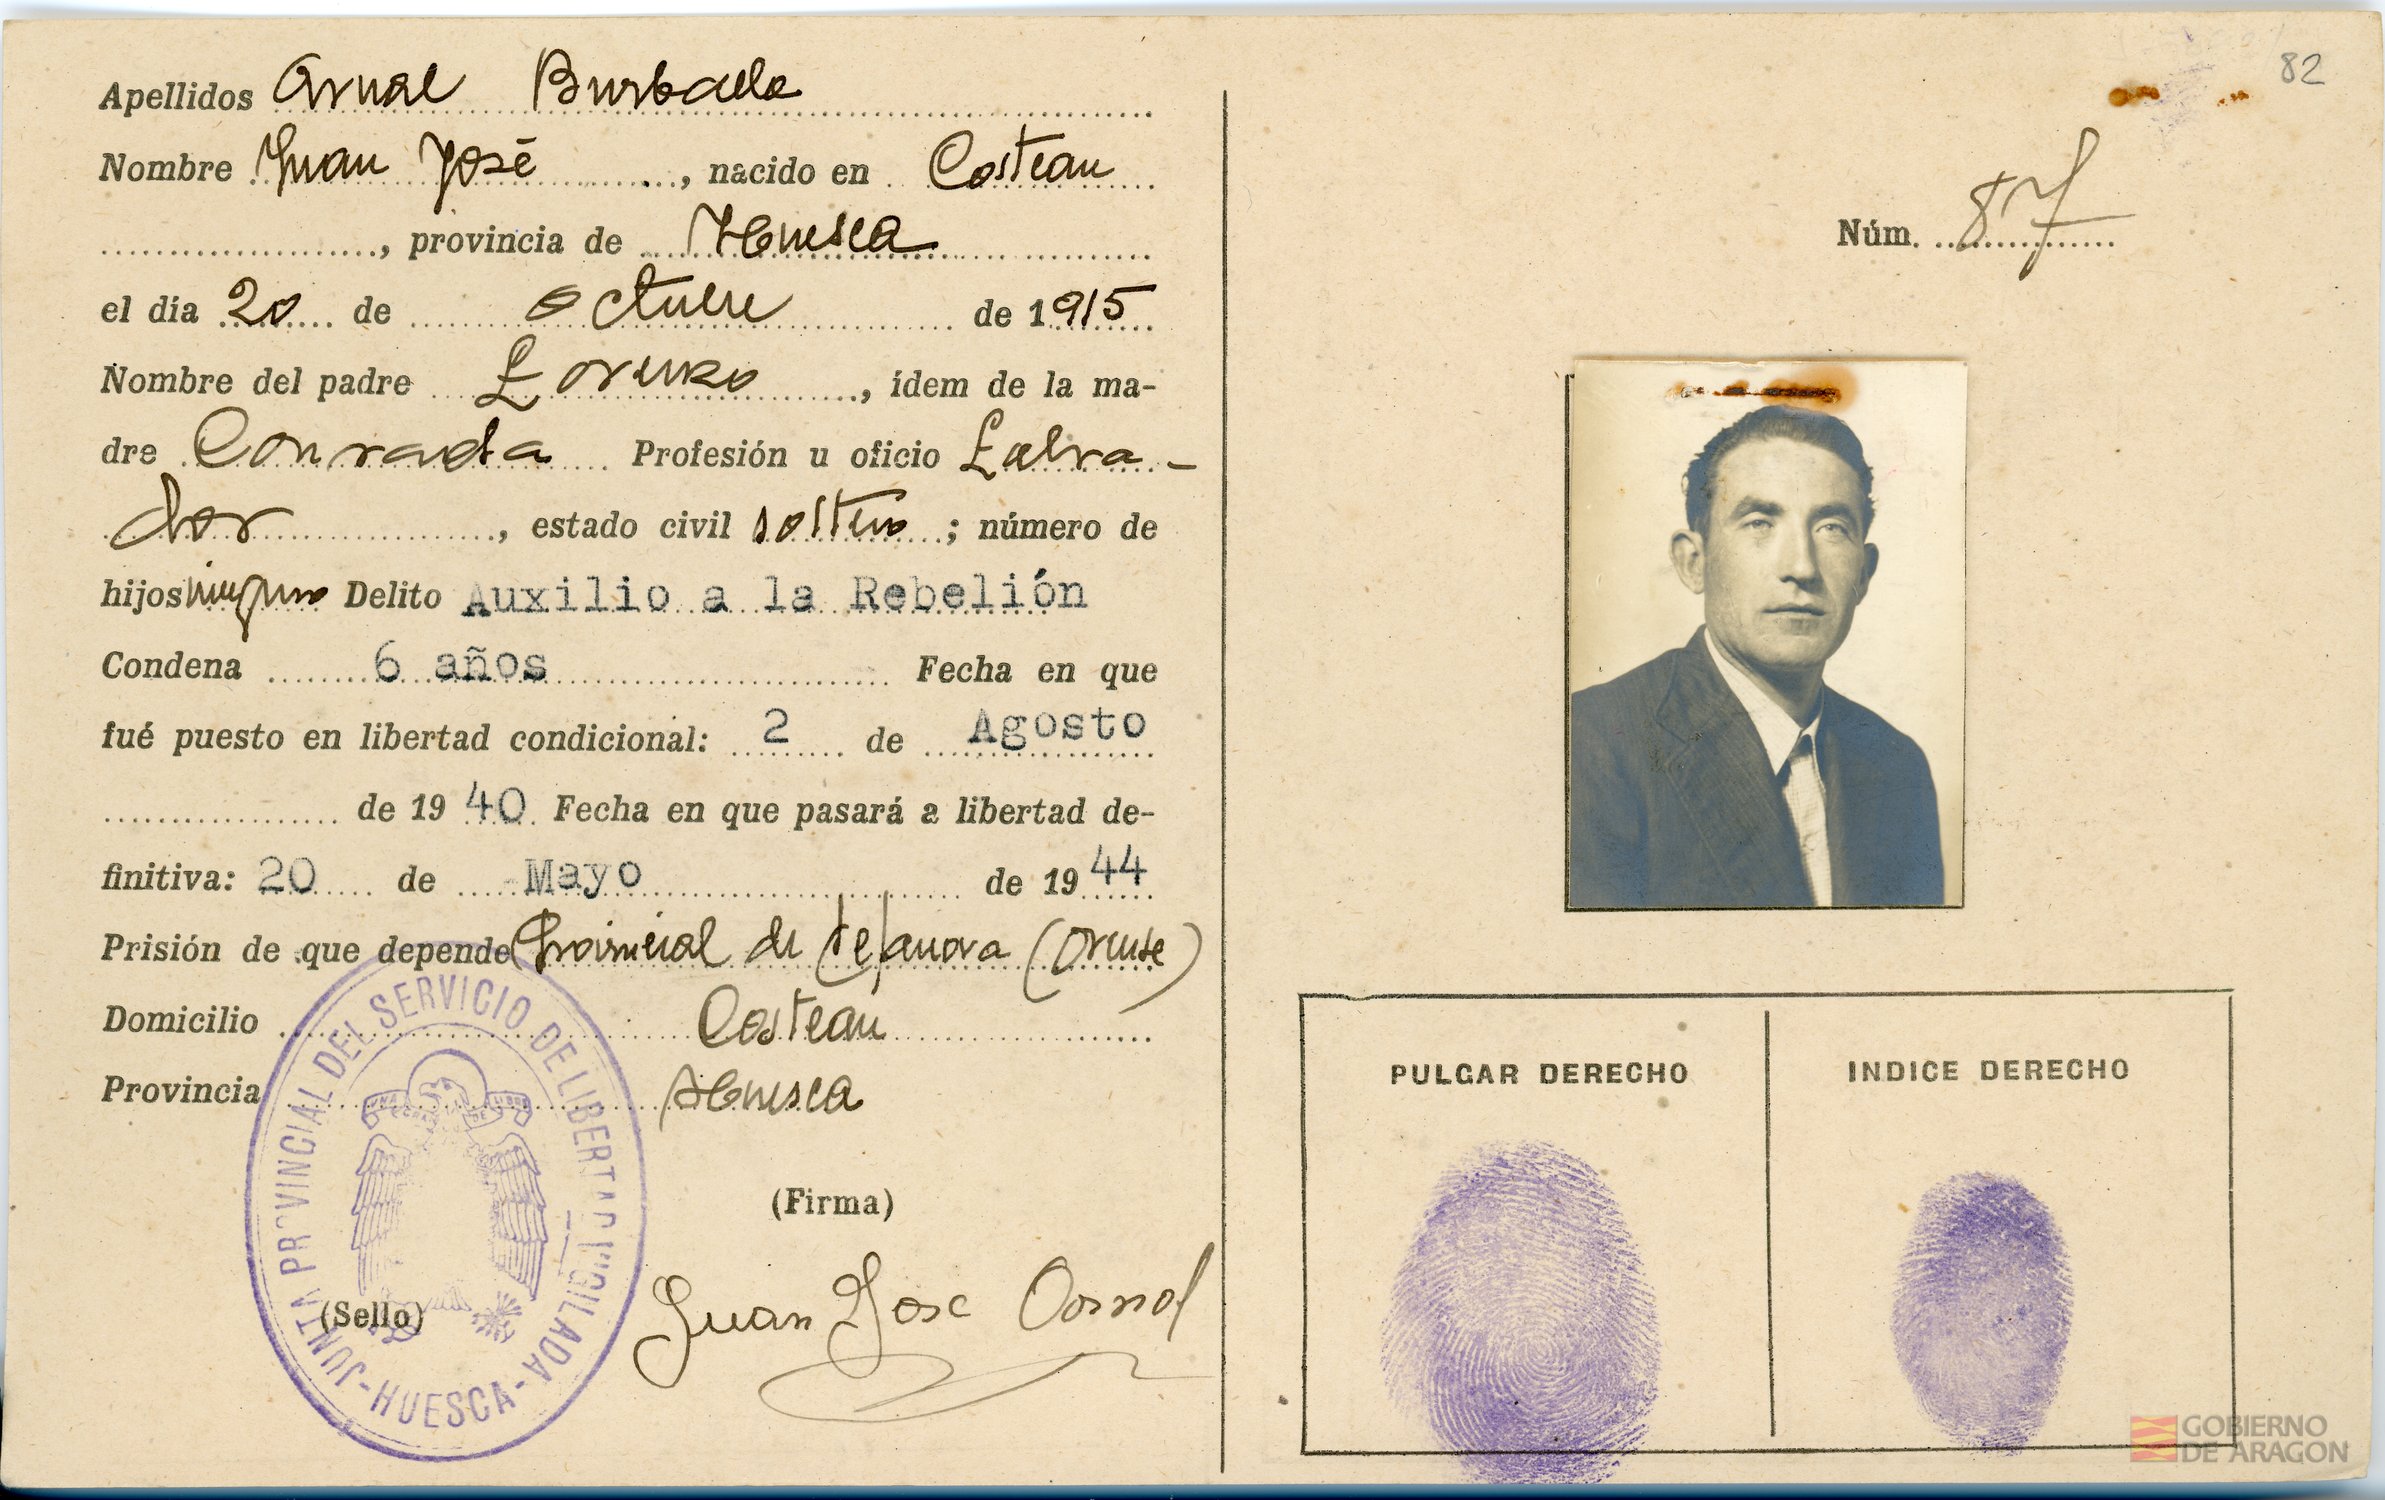 Apellidos Arnal Burballa
Nombre Juan José, nacido en Costean
, provincia de Huesca
el día 20 de octubre de 1915
Nombre del padre Lorenzo, ídem de la ma-
dre Conrada Profesión u oficio Labra-
dor, estado civil soltero; número de
hijos ninguno Delito Auxilio a la Rebelión
Condena 6 años Fecha en que
fué puesto en libertad condicional: 2 de Agosto
de 1940 Fecha en que pasará a libertad de-
finitiva: 20 de Mayo de 1944
Prisión de que depende Provincial de Celanova (Orense)
Domicilio Costean
Provincia Huesca
(Firma)
(Sello)
Juan Jose Arnal
JUNTA PROVINCIAL DEL SERVICIO DE LIBERTAD VIGILADA
-HUESCA-
82
Núm. 87
PULGAR DERECHO
INDICE DERECHO
GOBIERNO
DE ARAGON